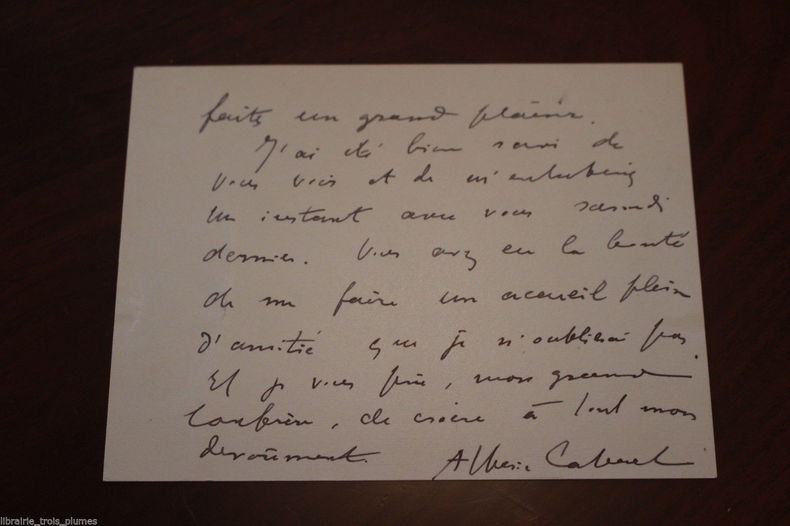 faites un grand plaisir.
J'ai été bien ravi de
vous voir et de m'entretenir
un instant avec vous samedi
dernier. Vous avez eu la bonté
de me faire un accueil plein
d'amitié que je n'oublierai pas.
Et je vous prie, mon grand
Confrère, de croire à tout mon
dévoûment.
librairie_trois_plumes